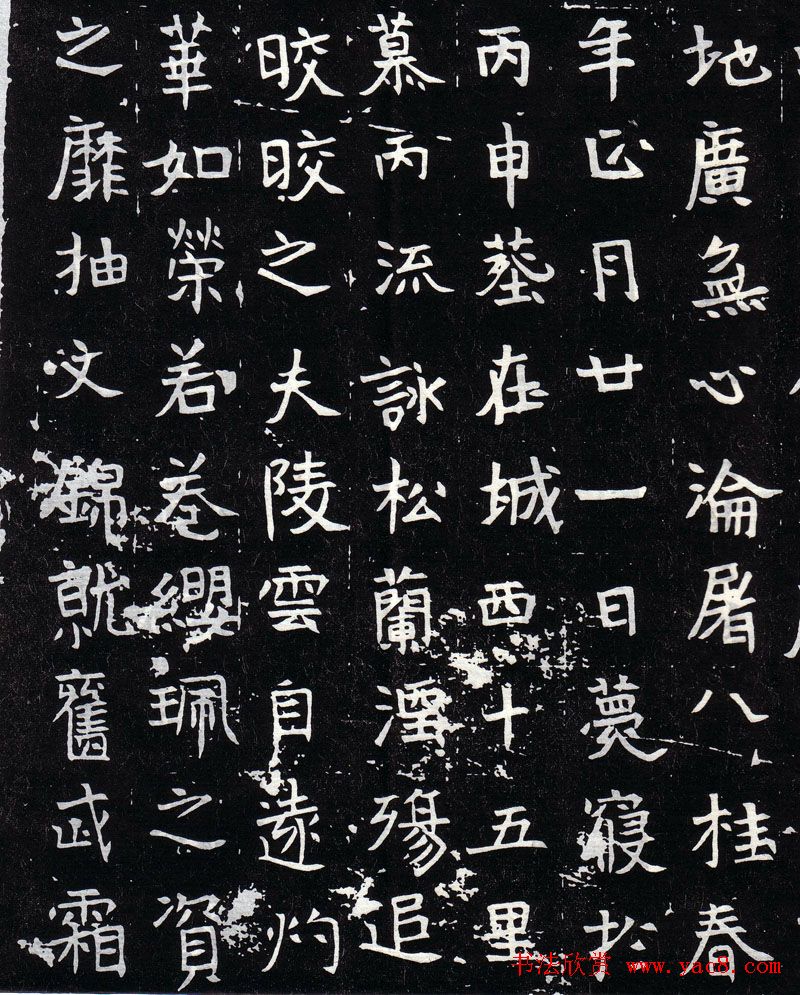 地廣無心淪屠八桂春
年正月廿一日薨寢於
丙申塟在城西十五里
慕丙流詠松蘭湮殤追
晈晈之夫陵雲自遠灼
華如榮若卷纓珮之資
之靡抽文錦就舊武霜
书法欣赏 www.yac8.com